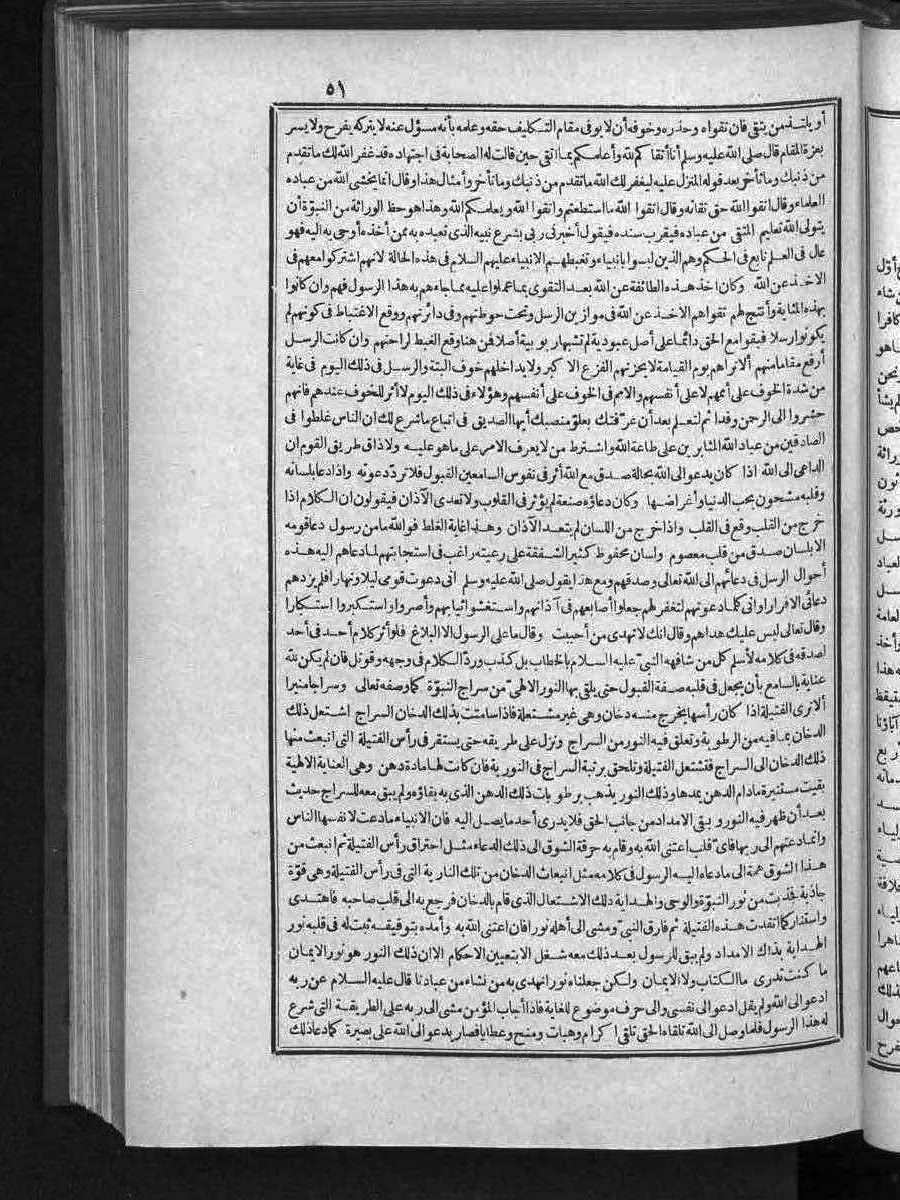 ٥١
أو يلتــذ من يتقى فان تقواه وحذره وخوفه أن لا يوفى مقام التــكليف حقه وعلمه بأنه مسؤل عنه لا يتركه يفرح ولا يسر
بعزة المقام قال صلى الله عليه وسلم أنا أتقا كم لله وأعلمكم بما اتقى حين قالت له الصحابة فى اجتهاده قد غفر الله لك ما تقدم
من ذنبك وما تأخر بعد قوله المنزل عليه ليغفر لك الله ما تقدم من ذنبك وما تأخر وأمثال هذا وقال انما يخشى الله من عباده
العلماء وقال اتقوا الله حق تقاته وقال اتقوا الله ما استطعتم واتقوا الله ويعلمكم الله وهذا هو حظ الوراثة من النبوّة أن
يتولى الله تعليم المتقى من عباده فيقرب سنده فيقول أخبرنى ربى بشرع نبيه الذى تعبده به ممن أخذه أوحى به اليه فهو
عال فى العلم تابع فى الحكم وهم الذين ليسوا بانبياء وتغبطهم الانبياء عليهم السلام فى هذه الحالة لانهم اشتركوا معهم فى
الاخــذ عن الله وكان اخذ هــذه الطائفة عن الله بعــد التقوى بما عملوا عليه بما جاءهم به هذا الرسول فهم وان كانوا
بهذه المثابة وأنتج لهم تقواهم الاخــذ عن الله فى موازين الرسل وتحت حوطتهم وفى دائرتهم ووقع الاغتباط فى كونهم لم
يكونوا رسلا فبقوا مع الحق دائما على أصل عبودية لم تشبها ربوبية أصلا فمن هنا وقع الغبط لراحتهم وان كانت الرسل
أرفع مقاما منهم ألا تراهم يوم القيامة لا يحزنهم الفزع الا كبر ولا يداخلهم خوف البتة والرسل فى ذلك اليوم فى غاية
من شدة الخوف على أممهم لا على أنفسهم والامم فى الخوف على أنفسهم وهؤلاء فى ذلك اليوم لا أثر للخوف عندهم فانهم
حشروا الى الرحمن وفدا ثم لتعلم بعد أن عرّفتك بعلوّ منصبك أيها الصديق فى اتباع ما شرع لك ان الناس غلطوا فى
الصادقين من عباد الله المثابرين على طاعة الله واشترط من لا يعرف الامر على ما هو عليــه ولا ذاق طريق القوم ان
الداعى الى الله اذا كان يدعو الى الله بحالة صدق مع الله أثر فى نفوس السامعين القبول فلا تردّ دعوته واذا دعا بلسانه
وقلبه مشحون بحب الدنيا وأغراضها وكان دعاؤه صنعة لم يؤثر فى القلوب ولا تعدى الآذان فيقولون ان الكلام اذا
خرج من القلب وقع فى القلب واذا خرج من اللسان لم يتعــد الآذان وهــذا غاية الغلط فو الله ما من رسول دعا قومه
الا بلسان صدق من قلب معصوم ولسان محفوظ كثير الشــفقة على رعيته راغب فى استجابتهم لما دعاهم اليه هــذه
أحوال الرسل فى دعائهم الى الله تعالى وصدقهم ومع هذا يقول صلى الله عليه وسلم انى دعوت قومى ليلا ونهارا فلم يزدهم
دعائى الا فرارا وانى كلما دعوتهم لتغفر لهم جعلوا أصابعهم فى آذانهم واســتغشوا ثيابهم وأصروا واستــكبروا استكبارا
وقال تعالى ليس عليك هداهم وقال انك لا تهدى من أحببت وقال ما على الرسول الا البلاغ فلو أثر كلام أحــد فى أحد
لصدقه فى كلامه لأسلم كل من شافهه النبىّ عليه الســلام بالخطاب بل كذب وردّ الكلام فى وجهه وقوتل فان لم يكن لله
عناية بالسامع بأن يجعل فى قلبه صــفة القبول حتى يلتقى بها النور الالهىّ من سراج النبوّة كما وصفه تعالى وسراجا منيرا
ألا ترى الفتيلة اذا كان رأسها يخرج منــه دخان وهى غير مشــتعلة فاذا سامتت بذلك الدخان السراج اشتعل ذلك
الدخان بما فيه من الرطوبة وتعلق فيه النور من السراج ونزل على طريقه حتى يستقر فى رأس الفتيلة التى انبعث منها
ذلك الدخان الى السراج فتشتعل الفتيلة وتلحق برتبة السراج فى النورية فان كانت لها مادة دهن وهى العناية الالهية
بقيت مستنيرة مادام الدهن يمدها وذلك النور يذهب برطوبات ذلك الدهن الذى به بقاؤه ولم يبق معه للسراج حديث
بعــد أن ظهر فيه النور وبقى الامداد من جانب الحق فلا يدرى أحد ما يصل اليه فان الانبياء ما دعت لانفسها الناس
وانما دعتهم الى ربها فاىّ قلب اعتنى الله به وقام به حرقة الشوق الى ذلك الدعاء مثــل احتراق رأس الفتيلة ثم انبعث من
هــذا الشوق همة الى ما دعاه اليــه الرسول فى كلامه مثل انبعاث الدخان من تلك النارية التى فى رأس الفتيلة وهى قوّة
جاذبة فجذبت من نور النبوّة والوحى والهــداية ذلك الاشــتعال الذى قام بالدخان فرجع به الى قلب صاحبه فاهتــدى
واستنار كما اتقدت هــذه الفتيلة ثم فارق النبىّ ومشى الى أهله نورا فان اعتنى الله به وأمده بتوفيقــه ثبت له فى قلبه نور
الهــداية بذاك الامداد ولم يبق للرسول بعــد ذلك معه شــغل الا بتعيين الاحكام الا ان ذلك النور هو نور الايمان
ما كنت تدرى ما الكتاب ولا الايمان ولكن جعلناه نورا نهدى به من نشاء من عبادنا قال عليه السلام عن ربه
ادعو الى الله ولم يقل ادعو الى نفسى والى حرف موضوع للغاية فاذا أجاب المؤمن مشى الى ربه على الطريقــة التى شرع
له هذا الرسول فلما وصل الى الله تلقاه الحق تلقى ا كرام وهبات ومنح وعطايا فصار يدعو الى الله على بصيرة كما دعا ذلك